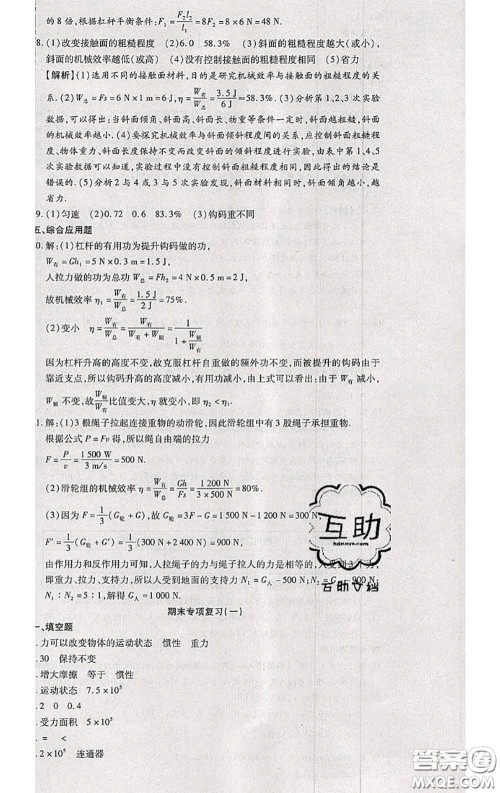 的8倍,根据杠杆平衡条件:F₁=F₂l₂/l₁=8F₂=8×6 N=48 N。
8.(1)改变接触面的粗糙程度 (2)6.0 58.3% (3)斜面的粗糙程度越大(或小),
斜面的机械效率越低(或高) (4)没有控制接触面的粗糙程度相同 (5)省力
【解析】(1)选用不同的接触面材料,目的是研究机械效率与斜面的粗糙程度的关
系。(2)W总=Fs=6 N×1 m=6 J,η=W有/W总=3.5 J/6 J=58.3%。(3)分析第1、2、3次实验
数据,可以得出:当斜面倾角、斜面高、斜面长、物重等条件一定时,斜面越粗糙,斜
面的机械效率越小。(4)要探究机械效率与斜面倾斜程度间的关系,应控制斜面粗糙程
度、物体重力、斜面长度保持不变而改变斜面的倾斜程度进行实验,由表中第1、4、5
次实验数据可以知道,实验过程中没有控制斜面粗糙程度相同,因此得出的结论是
错误的。(5)分析2与4或3与5次实验数据可得,斜面材料相同时,斜面倾角越小,越
省力。
9.(1)匀速 (2)0.72 0.6 83.3% (3)钩码重不同
五、综合应用题
0.解:(1)杠杆的有用功为提升钩码做的功,
W有=Gh₁=5 N×0.3 m=1.5 J,
人拉力做的功为总功 W总=Fh₂=4 N×0.5 m=2 J,
故机械效率 η₁=W有/W总=1.5 J/2 J=75%。
(2)变小 η=W有/W总=W有/(W有+W额)=1/(1+W额/W有)
因为杠杆升高的高度不变,故克服杠杆自重做的额外功不变,而被提升的钩码由于
靠近支点,所以钩码升高的高度减小,有用功减小,由上式可以看出:当 W有 减小,
W额 不变,故 W额/W有 比值变大,η 就变小,即 η₂<η₁。
1.解:(1)3根绳子拉起连接重物的动滑轮,因此滑轮组中有3股绳子承担重物.
根据公式 P=Fv 得,所以绳自由端的拉力
F=P/v=1 500 W/3 m/s=500 N.
(2)滑轮组的机械效率 η=W有/W总=Gh/Fs=1 200 N/3×500 N=80%.
(3)因为 F=1/3(G轮+G),故 G轮=3F-G=1 500 N-1 200 N=300 N,
F′=1/3(G轮+G′)=1/3(300 N+2 400 N)=900 N.
由作用力和反作用力可知,人拉绳子的力与绳子拉人的力是相等的,人受到3个力,
即重力、拉力、支持力,因为人受力平衡,所以 N₁=G人-500 N;N₂=G人-900 N;
N₁∶N₂=5∶1,解得 G人=1 000 N.
期末专项复习(一)
一、填空题
.力可以改变物体的运动状态 惯性 重力
.30 保持不变
.增大摩擦 等于 惯性
.运动状态 7.5×10⁵
.2 0 0.4
.受力面积 5×10⁵
.= = <
.2×10⁵ 连通器
互助
hdzuoye.com
互助文档
答案圈
MXQE.COM